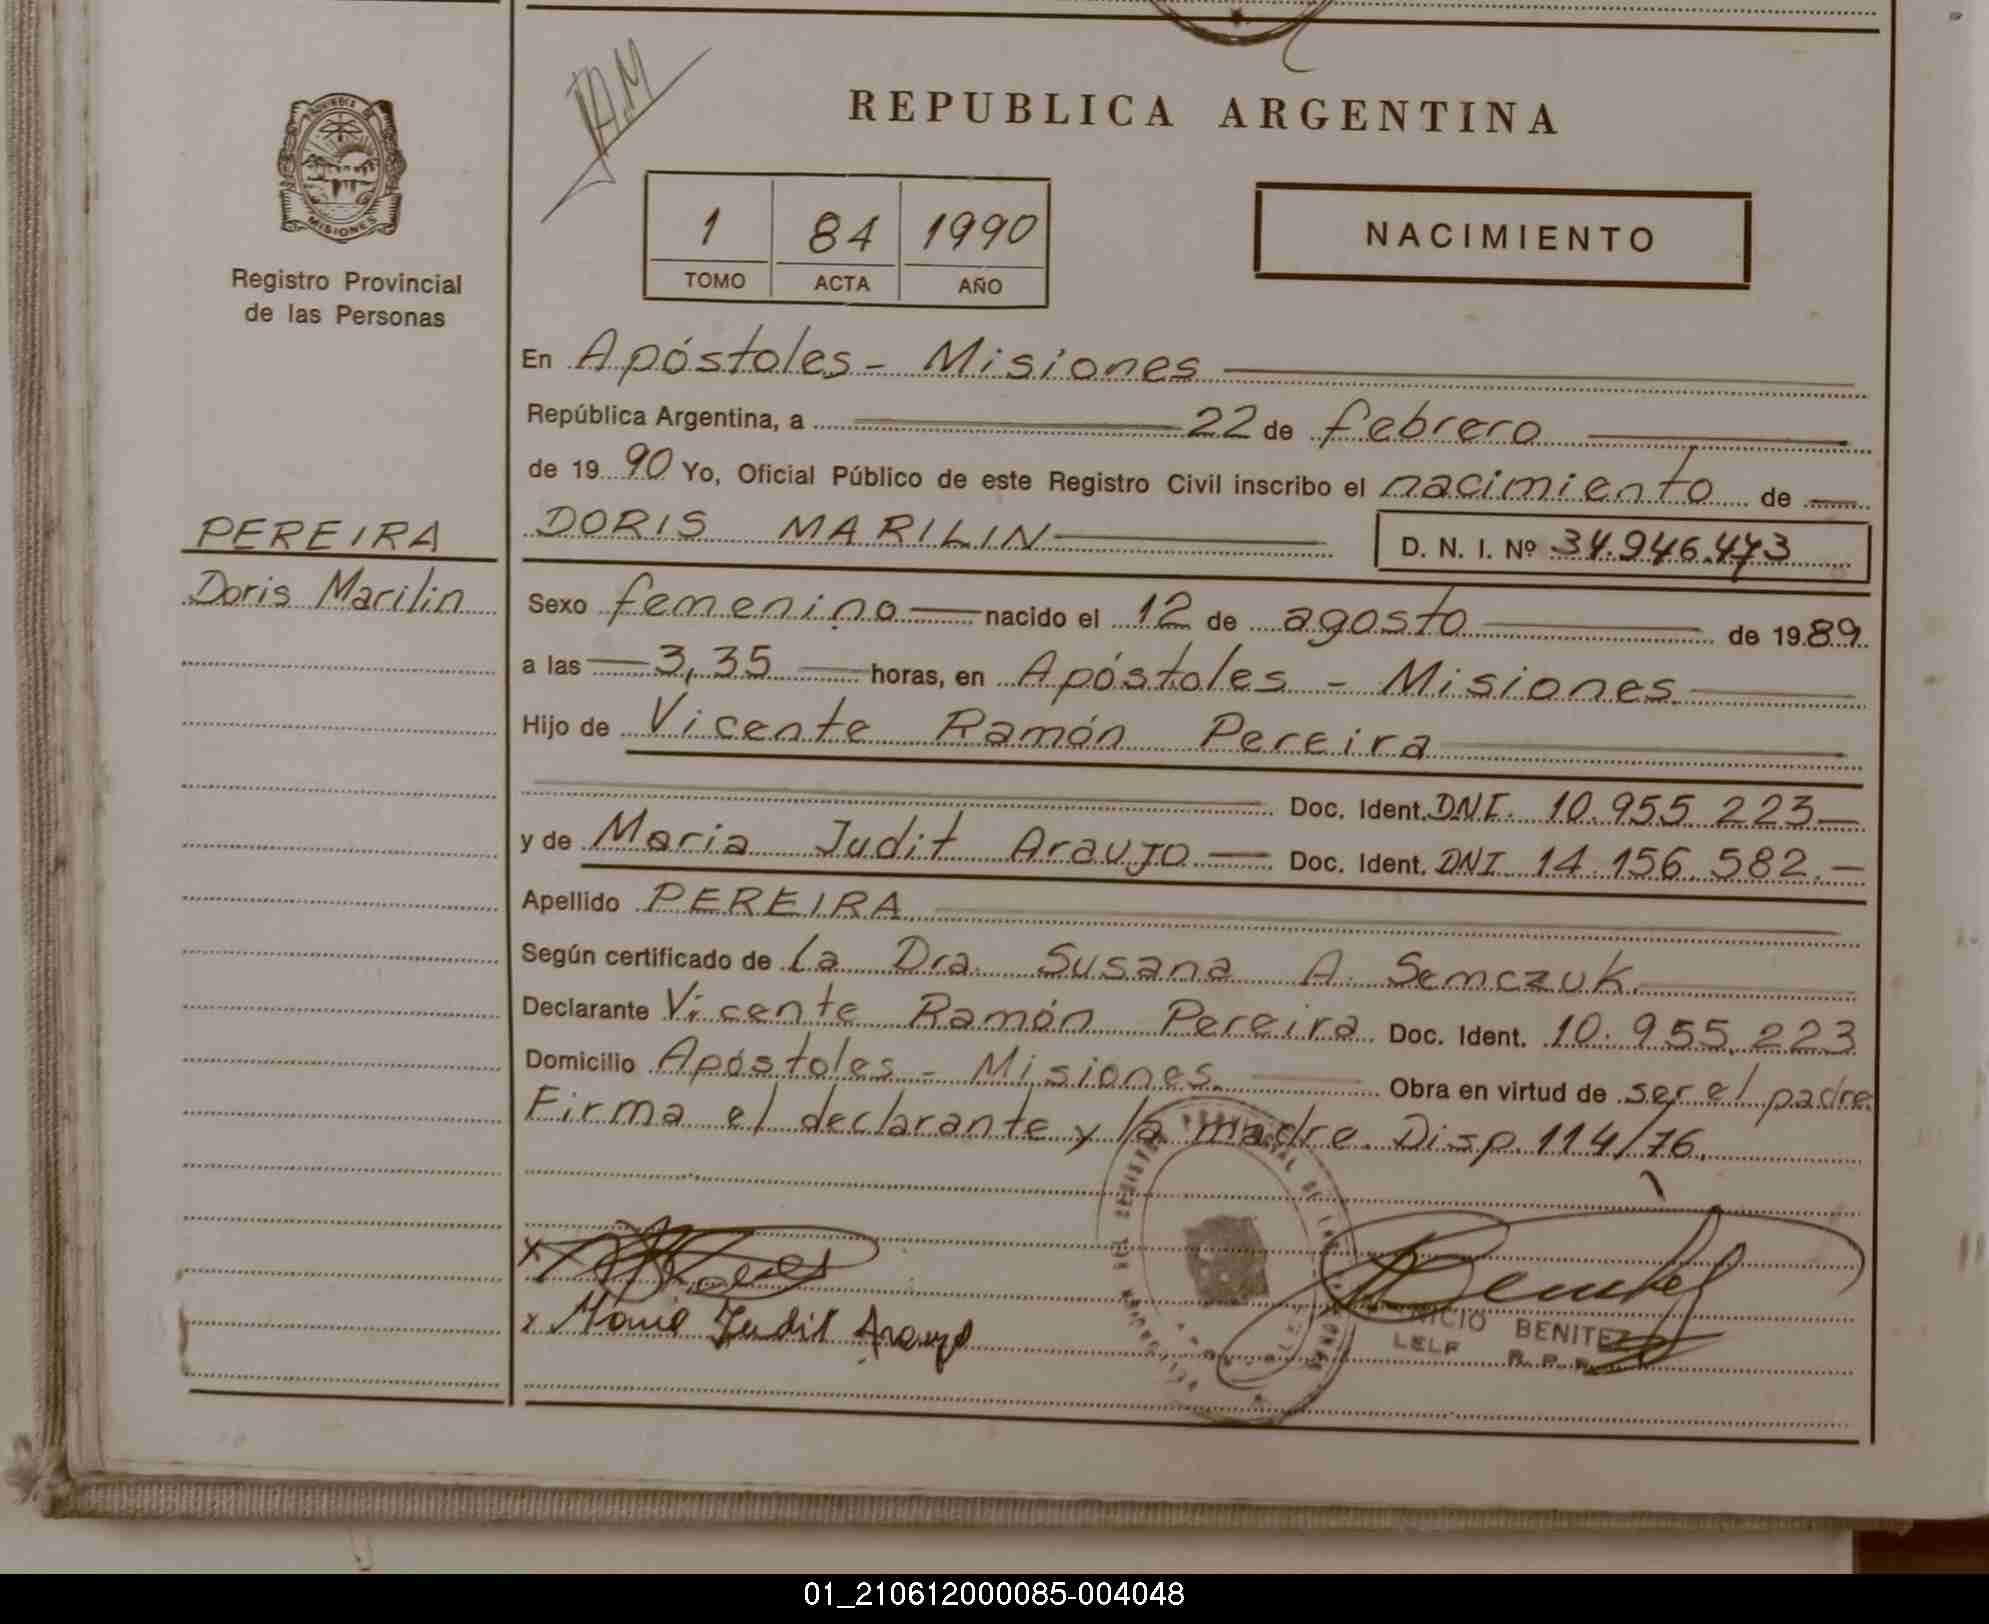 REPUBLICA ARGENTINA
MISIONES
Registro Provincial
de las Personas
1 84 1990
TOMO ACTA AÑO
NACIMIENTO
En Apóstoles - Misiones
República Argentina, a 22 de febrero
de 19 90 Yo, Oficial Público de este Registro Civil inscribo el nacimiento de
PEREIRA
Doris Marilin
DORIS MARILIN D. N. I. Nº 34.946.473
Sexo femenino nacido el 12 de agosto de 19 89
a las 3,35 horas, en Apóstoles - Misiones
Hijo de Vicente Ramón Pereira
Doc. Ident. DNI. 10.955.223
y de Maria Judit Araujo Doc. Ident. DNI 14.156.582.
Apellido PEREIRA
Según certificado de la Dra. Susana A. Semczuk.
Declarante Vicente Ramón Pereira Doc. Ident. 10.955.223
Domicilio Apóstoles - Misiones. Obra en virtud de ser el padre
Firma el declarante y la madre. Disp. 114/76.
x
x Maria Judit Araujo
BENITEZ
01_210612000085-004048